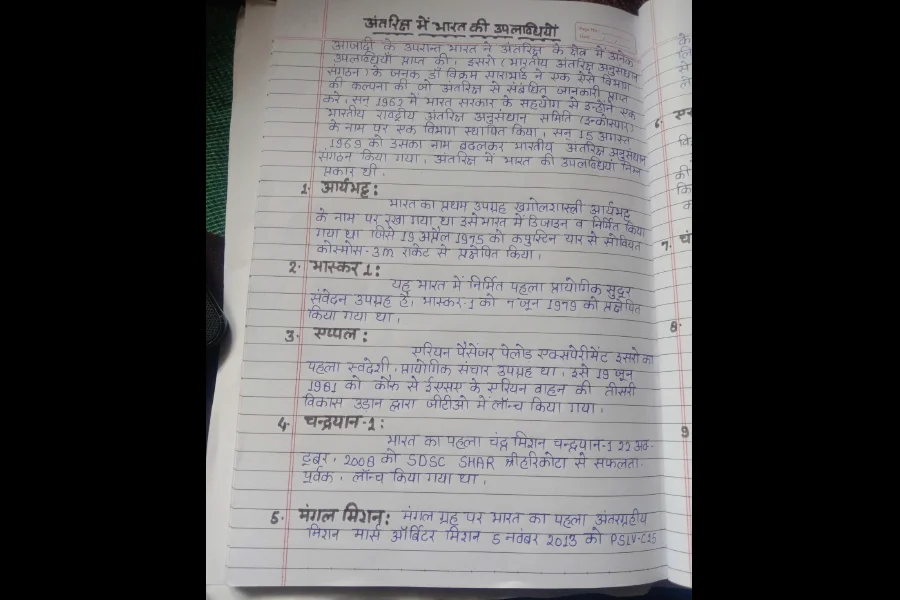 अंतरिक्ष में भारत की उपलब्धियाँ
आजादी के उपरान्त भारत ने अंतरिक्ष के क्षेत्र में अनेक
उपलब्धियाँ प्राप्त की। इसरो (भारतीय अंतरिक्ष अनुसंधान
संगठन) के जनक डॉ विक्रम साराभाई ने एक ऐसे विभाग
की कल्पना की जो अंतरिक्ष से संबंधित जानकारी प्राप्त
करे। सन् 1962 में भारत सरकार के सहयोग से इन्होंने एक
भारतीय राष्ट्रीय अंतरिक्ष अनुसंधान समिति (इन्कोस्पार)
के नाम पर एक विभाग स्थापित किया। सन् 15 अगस्त
1969 को उसका नाम बदलकर भारतीय अंतरिक्ष अनुसंधान
संगठन किया गया। अंतरिक्ष में भारत की उपलब्धियाँ निम्न
प्रकार थी।
1. आर्यभट्ट:
भारत का प्रथम उपग्रह खगोलशास्त्री आर्यभट्ट
के नाम पर रखा गया था इसे भारत में डिजाइन व निर्मित किया
गया था जिसे 19 अप्रैल 1975 को कपुस्टिन यार से सोवियत
कोस्मोस-3m राकेट से प्रक्षेपित किया।
2. भास्कर 1:
यह भारत में निर्मित पहला प्रायोगिक सुदूर
संवेदन उपग्रह है। भास्कर-1 को 7 जून 1979 को प्रक्षेपित
किया गया था।
3. एप्पल:
एरियन पैसेंजर पेलोड एक्सपेरीमेंट इसरो का
पहला स्वदेशी, प्रायोगिक संचार उपग्रह था। इसे 19 जून
1981 को कौरू से ईएसए के एरियन वाहन की तीसरी
विकास उड़ान द्वारा जीटीओ में लॉन्च किया गया।
4. चन्द्रयान-1:
भारत का पहला चंद्र मिशन चन्द्रयान-1 22 अक-
टूबर, 2008 को SDSC SHAR श्रीहरिकोटा से सफलता-
पूर्वक। लॉन्च किया गया था।
5. मंगल मिशन: मंगल ग्रह पर भारत का पहला अंतरग्रहीय
मिशन मार्स ऑर्बिटर मिशन 5 नवंबर 2013 को PSLV-C25
6.
7. चं
8.
9